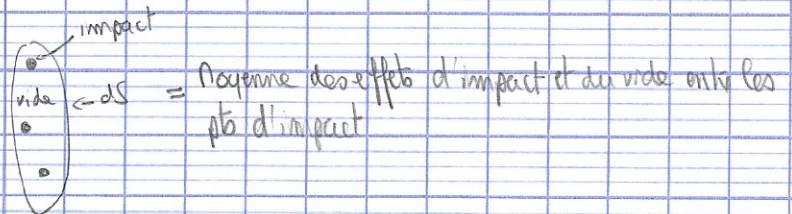 impact
vide ← dS = Moyenne des effets d'impact et du vide entre les
pts d'impact